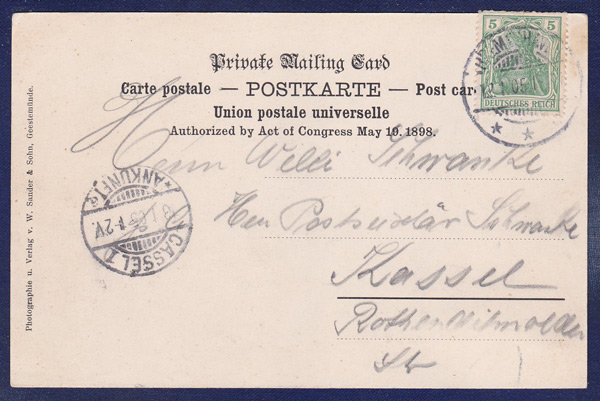 Private Mailing Card
Carte postale — POSTKARTE — Post car
Union postale universelle
Authorized by Act of Congress May 19. 1898.
5 5
DEUTSCHES REICH
Herrn Willi Schwanke
Herr Postsekretär Schwanke
Kassel
Rothenditmolder
Str
* ANKUNFT *
1-2V.
CASSEL 1
Photographie u. Verlag v. W. Sander & Sohn, Geestemünde.